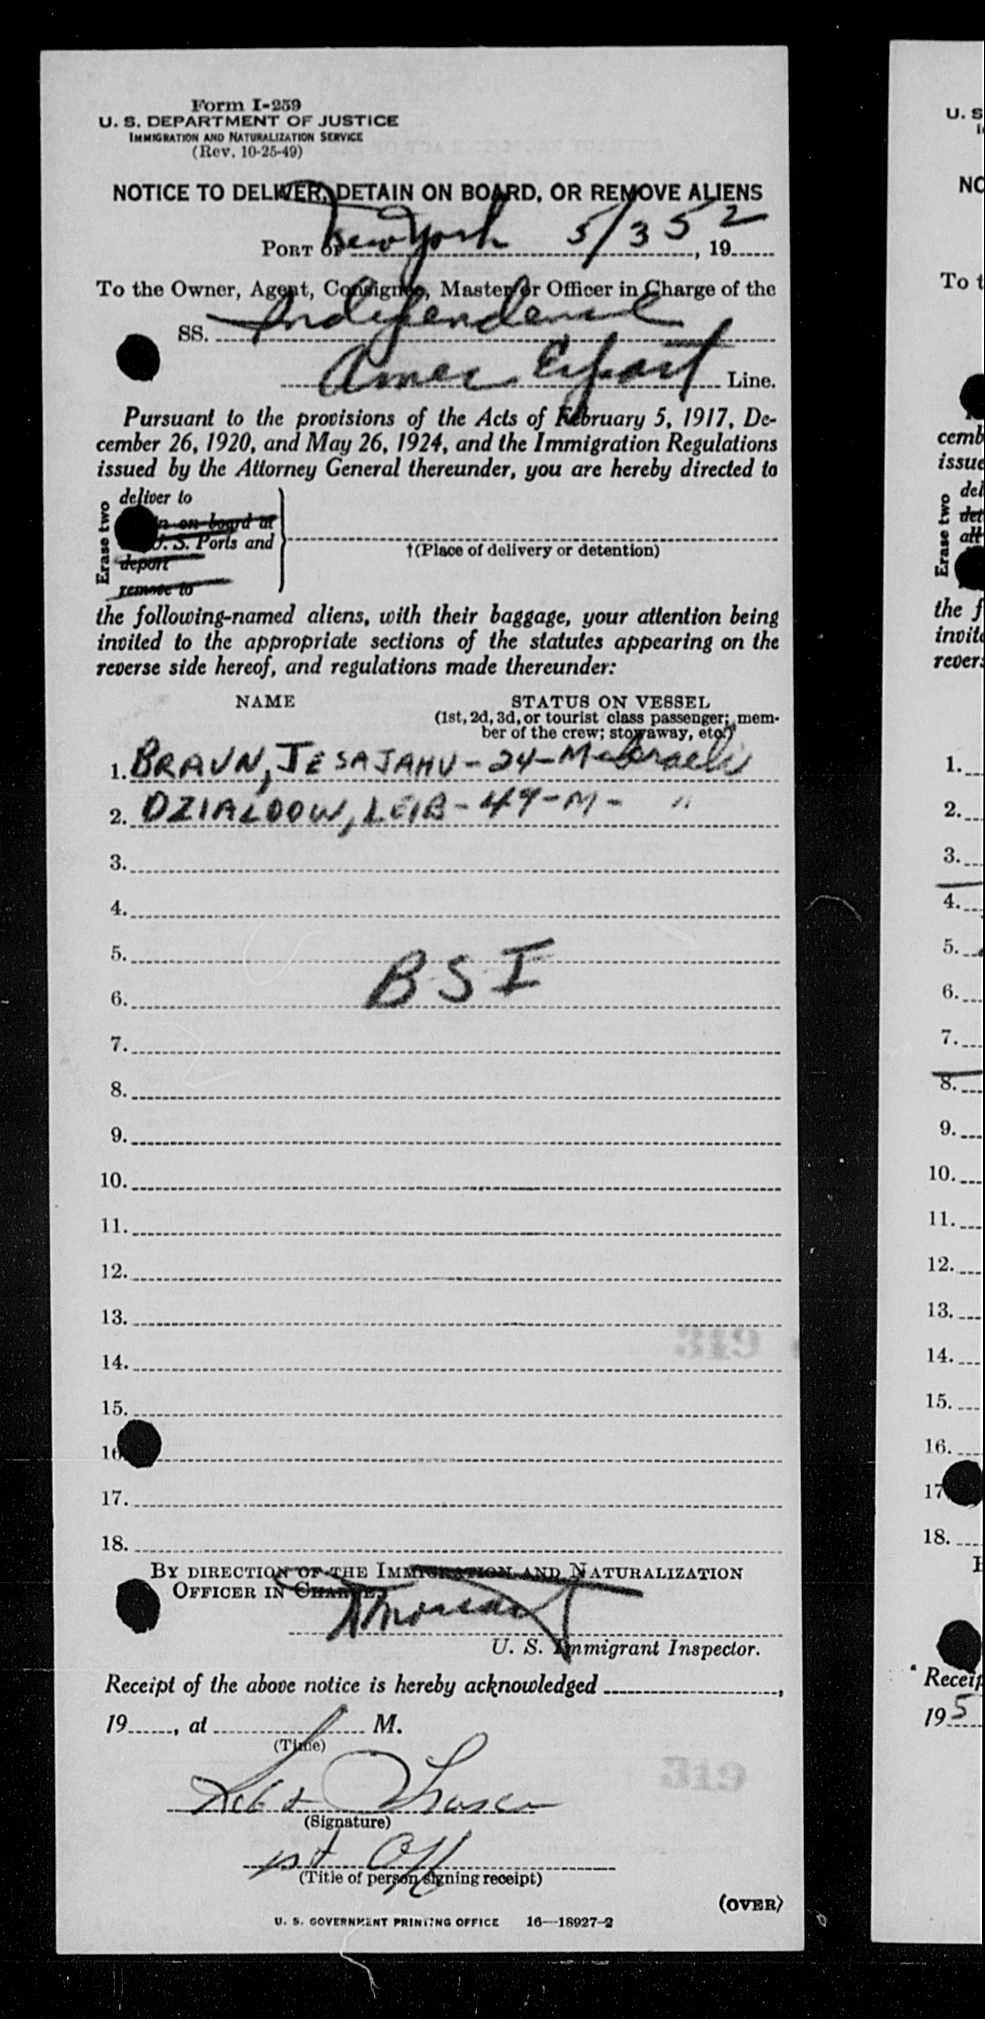 Form I-259
U. S. DEPARTMENT OF JUSTICE
IMMIGRATION AND NATURALIZATION SERVICE
(Rev. 10-25-49)
NOTICE TO DELIVER, DETAIN ON BOARD, OR REMOVE ALIENS
PORT OF New York 5/3 52, 19
To the Owner, Agent, Consignee, Master or Officer in Charge of the
SS. Independence
Amer Export Line.
Pursuant to the provisions of the Acts of February 5, 1917, De-
cember 26, 1920, and May 26, 1924, and the Immigration Regulations
issued by the Attorney General thereunder, you are hereby directed to
Erase two
deliver to
on board at
U. S. Ports and
deport
remove to
†(Place of delivery or detention)
the following-named aliens, with their baggage, your attention being
invited to the appropriate sections of the statutes appearing on the
reverse side hereof, and regulations made thereunder:
NAME STATUS ON VESSEL
(1st, 2d, 3d, or tourist class passenger; mem-
ber of the crew; stowaway, etc.)
1. BRAUN, JESAJAHU - 24 - M - Israeli
2. DZIALDOW, LEIB - 49 - M - "
3.
4.
5.
6. BSI
7.
8.
9.
10.
11.
12.
13.
14.
15.
16
17.
18.
BY DIRECTION OF THE IMMIGRATION AND NATURALIZATION
OFFICER IN CHARGE,
U. S. Immigrant Inspector.
Receipt of the above notice is hereby acknowledged ,
19 , at M.
(Time)
(Signature)
1st Off
(Title of person signing receipt)
(OVER)
U. S. GOVERNMENT PRINTING OFFICE 16—18927-2
U. S
NO
To t
cemb
issue
Erase two
del
det
all
the f
invite
revers
1.
2.
3.
4.
5.
6.
7.
8.
9.
10.
11.
12.
13.
14.
15.
16.
17
18.
Receip
195